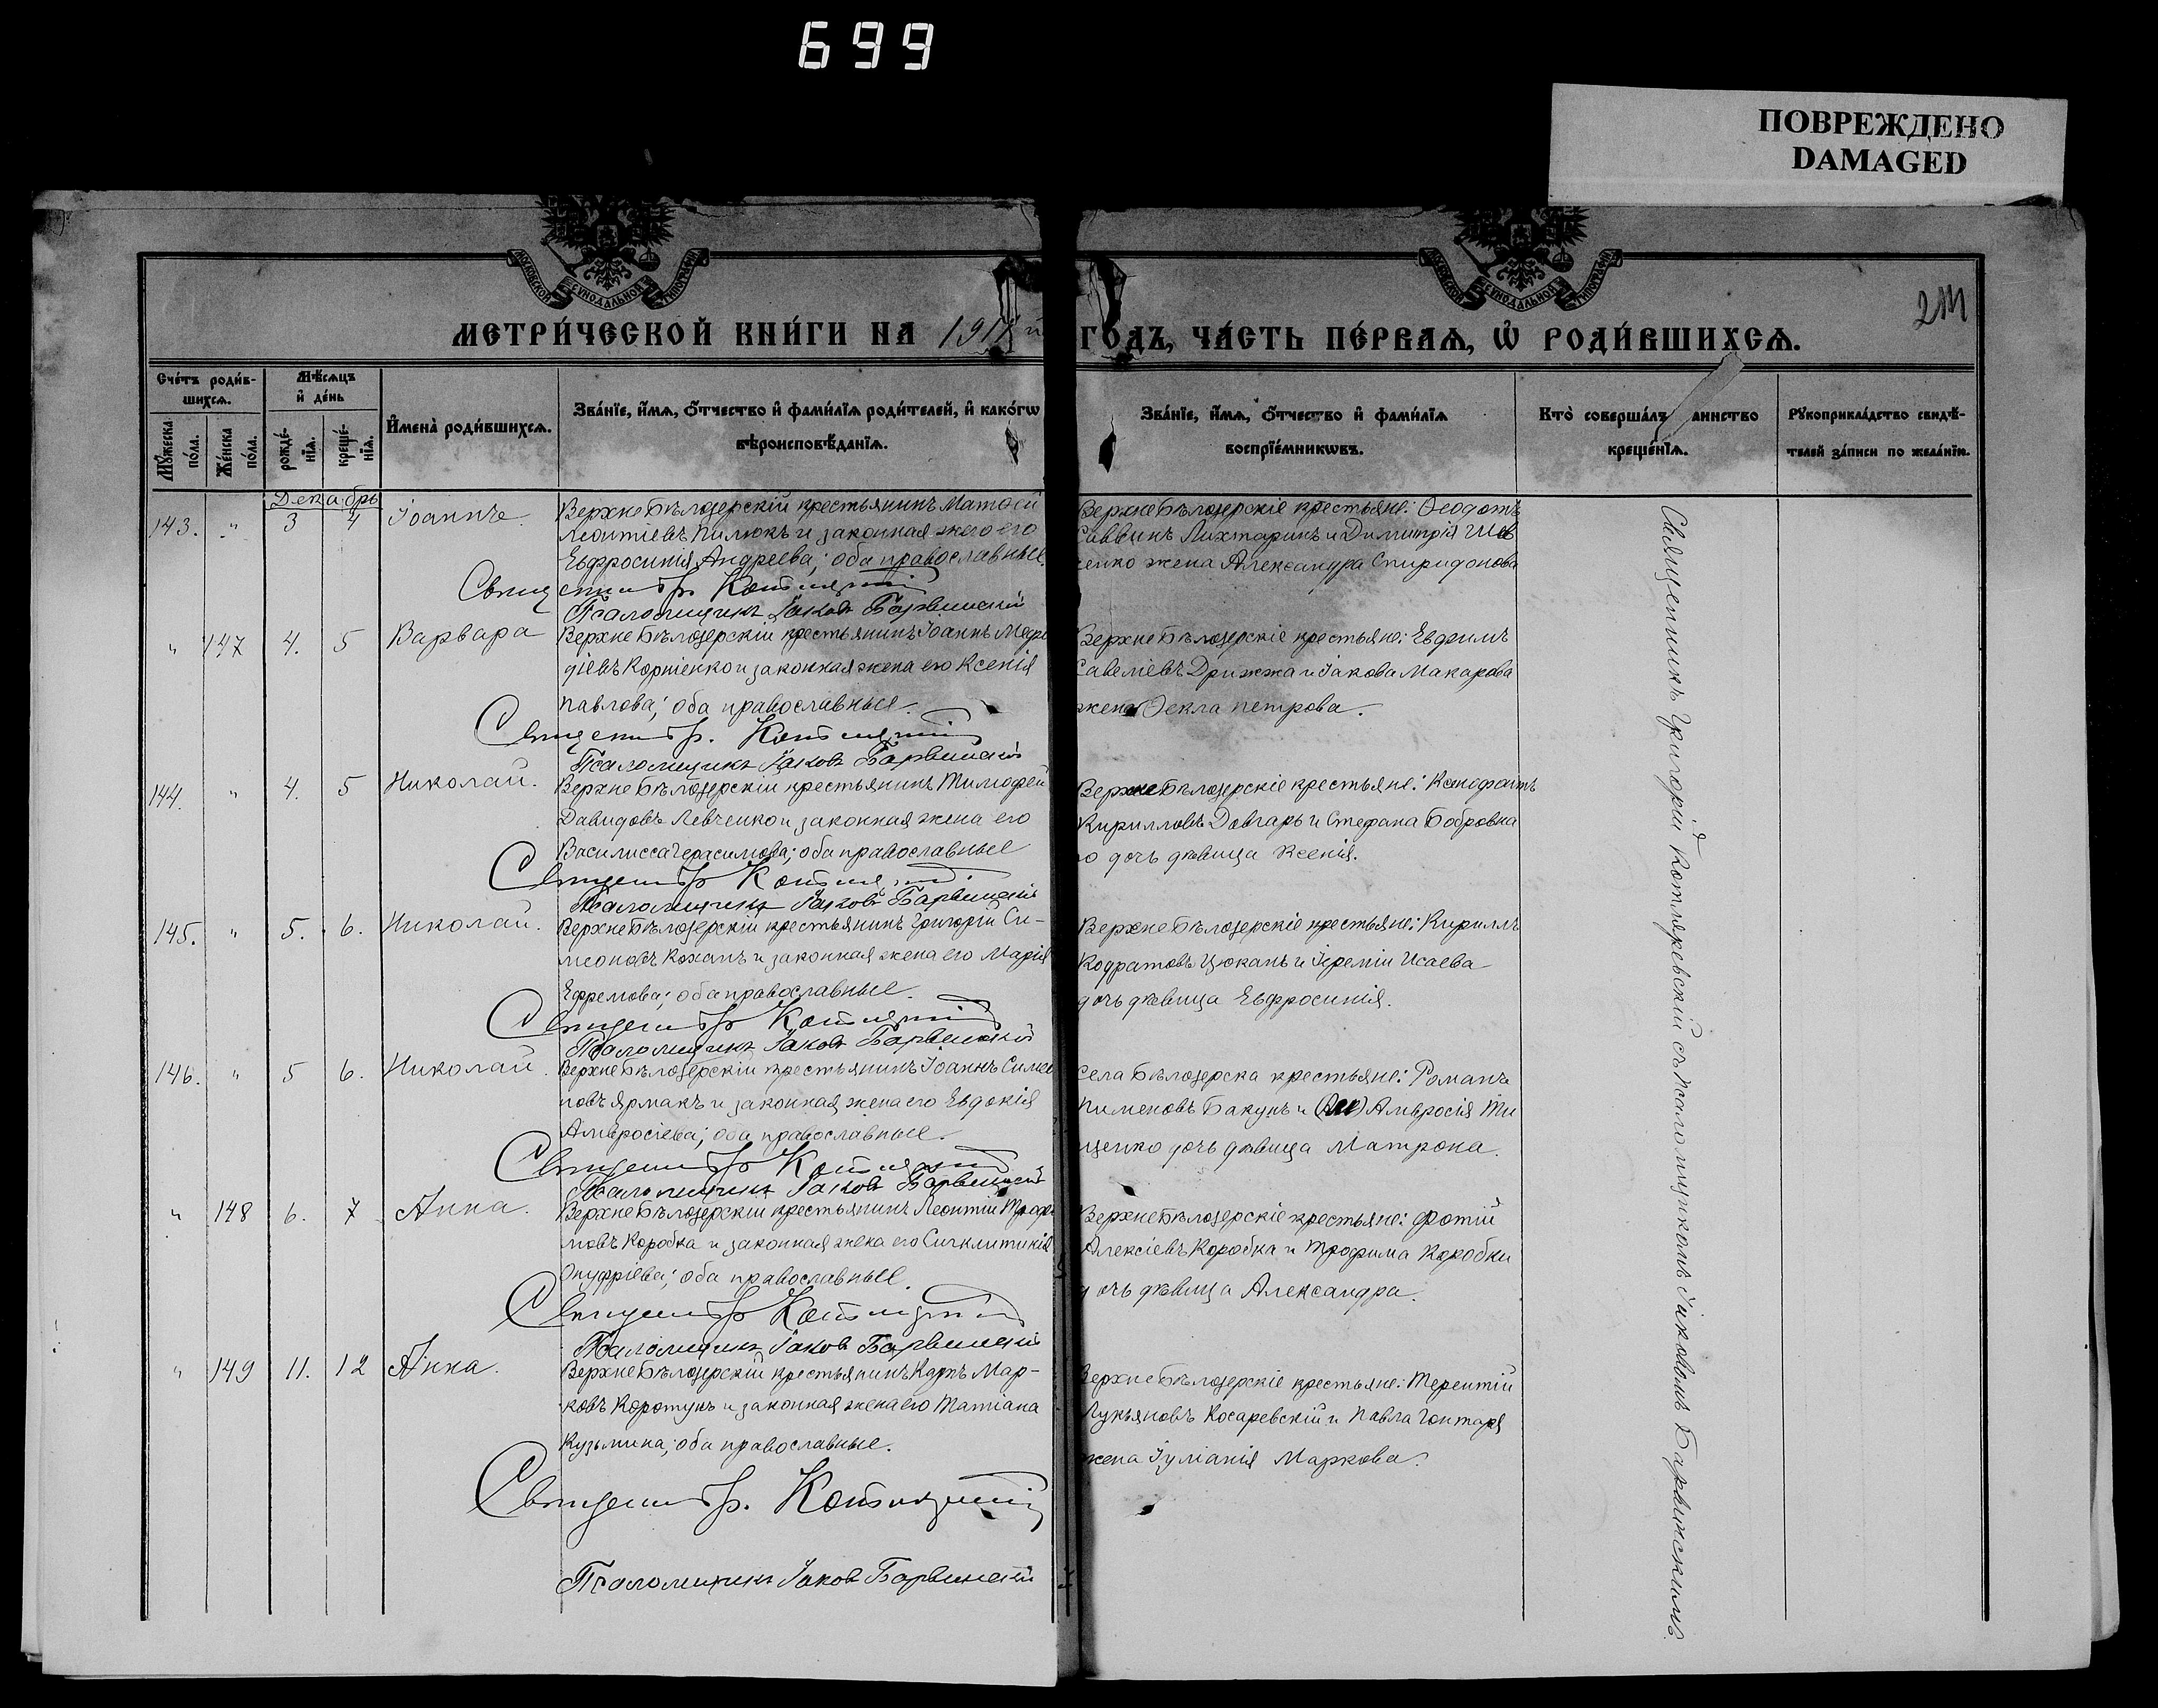 699
ПОВРЕЖДЕНО
DAMAGED
МОСКОВСКОЙ СѴНОДАЛЬНОЙ ТИПОГРАФІИ
МОСКОВСКОЙ СѴНОДАЛЬНОЙ ТИПОГРАФІИ
МЕТРИ́ЧЕСКОЙ КНИ́ГИ НА 191
ГОДЪ, ЧА́СТЬ ПЕ́РВАѦ, Ѡ РОДИ́ВШИХСѦ.
Сче́тъ роди́в-
шихсѧ.
Мѣ́сѧцъ
и҆ де́нь
Мꙋ́жеска
по́ла.
Же́нска
по́ла.
рожде́-
нїѧ.
креще́-
нїѧ.
И҆мена̀ роди́вшихсѧ.
Зва́нїе, и҆́мѧ, ѻ҆́тчество и҆ фами́лїѧ роди́телей, и҆ како́гѡ
вѣроисповѣ́данїѧ.
Зва́нїе, и҆́мѧ, ѻ҆́тчество и҆ фами́лїѧ
воспрїе́мникѡвъ.
Кто̀ соверша́лъ аинство
креще́нїѧ.
Рꙋкоприкла́дство свидѣ́-
телей за́писи по жела́нїю.
Декабрь
143. " 3 4 Іоаннъ
Верхне Бѣлозерскій крестьянинъ Матѳей
Леонтіевъ Пилюкъ и законная жена его
Евфросинія Андреева; оба православные.
Священникъ Гр. Котляревскій
Псаломщикъ Іаковъ Барвинскій
Верхне Бѣлозерскіе крестьяне: Ѳеодотъ
Саввинъ Лихтаринъ и Димитрія Шев
ченко жена Александра Спиридонова
" 147 4. 5 Варвара
Верхне Бѣлозерскій крестьянинъ Іоаннъ Меѳо
діевъ Корніенко и законная жена его Ксенія
Павлова; оба православные.
Священникъ Гр. Котляревскій
Псаломщикъ Іаковъ Барвинскій
Верхне Бѣлозерскіе крестьяне: Евфимъ
Савеліевъ Дрижжа и Іакова Макарова
жена Ѳекла Петрова.
144. " 4. 5 Николай.
Верхне Бѣлозерскій крестьянинъ Тимофей
Давидовъ Левченко и законная жена его
Василисса Герасимова; оба православные
Священникъ Гр Котляревскій
Псаломщикъ Іаковъ Барвинскій
Верхне Бѣлозерскіе крестьяне: Ксенофонтъ
Кирилловъ Довгаръ и Стефана Бобровна
о дочь дѣвица Ксенія.
145. " 5. 6. Николай.
Верхне Бѣлозерскій крестьянинъ Григорій Си-
меоновъ Коханъ и законная жена его Марія
Ефремова; оба православные.
Священникъ Гр Котляревскій
Псаломщикъ Іаковъ Барвинскій
Верхне Бѣлозерскіе крестьяне: Кириллъ
Кодратовъ Цюканъ и Іереміи Исаева
дочь дѣвица Евфросинія.
146. " 5 6. Николай.
Верхне Бѣлозерскій крестьянинъ Іоаннъ Симео
новъ Ярмакъ и законная жена его Евдокія
Амвросіева; оба православные.
Священникъ Гр Котляревскій
Псаломщикъ Іаковъ Барвинскій
Села Бѣлозерска крестьяне: Романъ
Пименовъ Бакунъ и Амвросія Ти
щенко дочь дѣвица Матрона.
" 148 6. 7 Анна.
Верхне Бѣлозерскій крестьянинъ Леонтій Трофи
мовъ Коробка и законная жена его Сигклитикія
Онуфріева; оба православные.
Священникъ Гр Котляревскій
Псаломщикъ Іаковъ Барвинскій
Верхне Бѣлозерскіе крестьяне: Фотій
Алексіевъ Коробка и Трофима Коробки
дочь дѣвица Александра.
" 149 11. 12 Анна.
Верхне Бѣлозерскій крестьянинъ Карпъ Мар-
ковъ Коротунъ и законная жена его Татіана
Кузьмина; оба православные.
Священникъ Гр. Котляревскій
Псаломщикъ Іаковъ Барвинскій
Верхне Бѣлозерскіе крестьяне: Терентій
Лукьяновъ Косаревскій и Павла Гонтаря
жена Іуліанія Маркова.
Священникъ Григорій Котляревскій съ псаломщикомъ Іаковомъ Барвинскимъ.